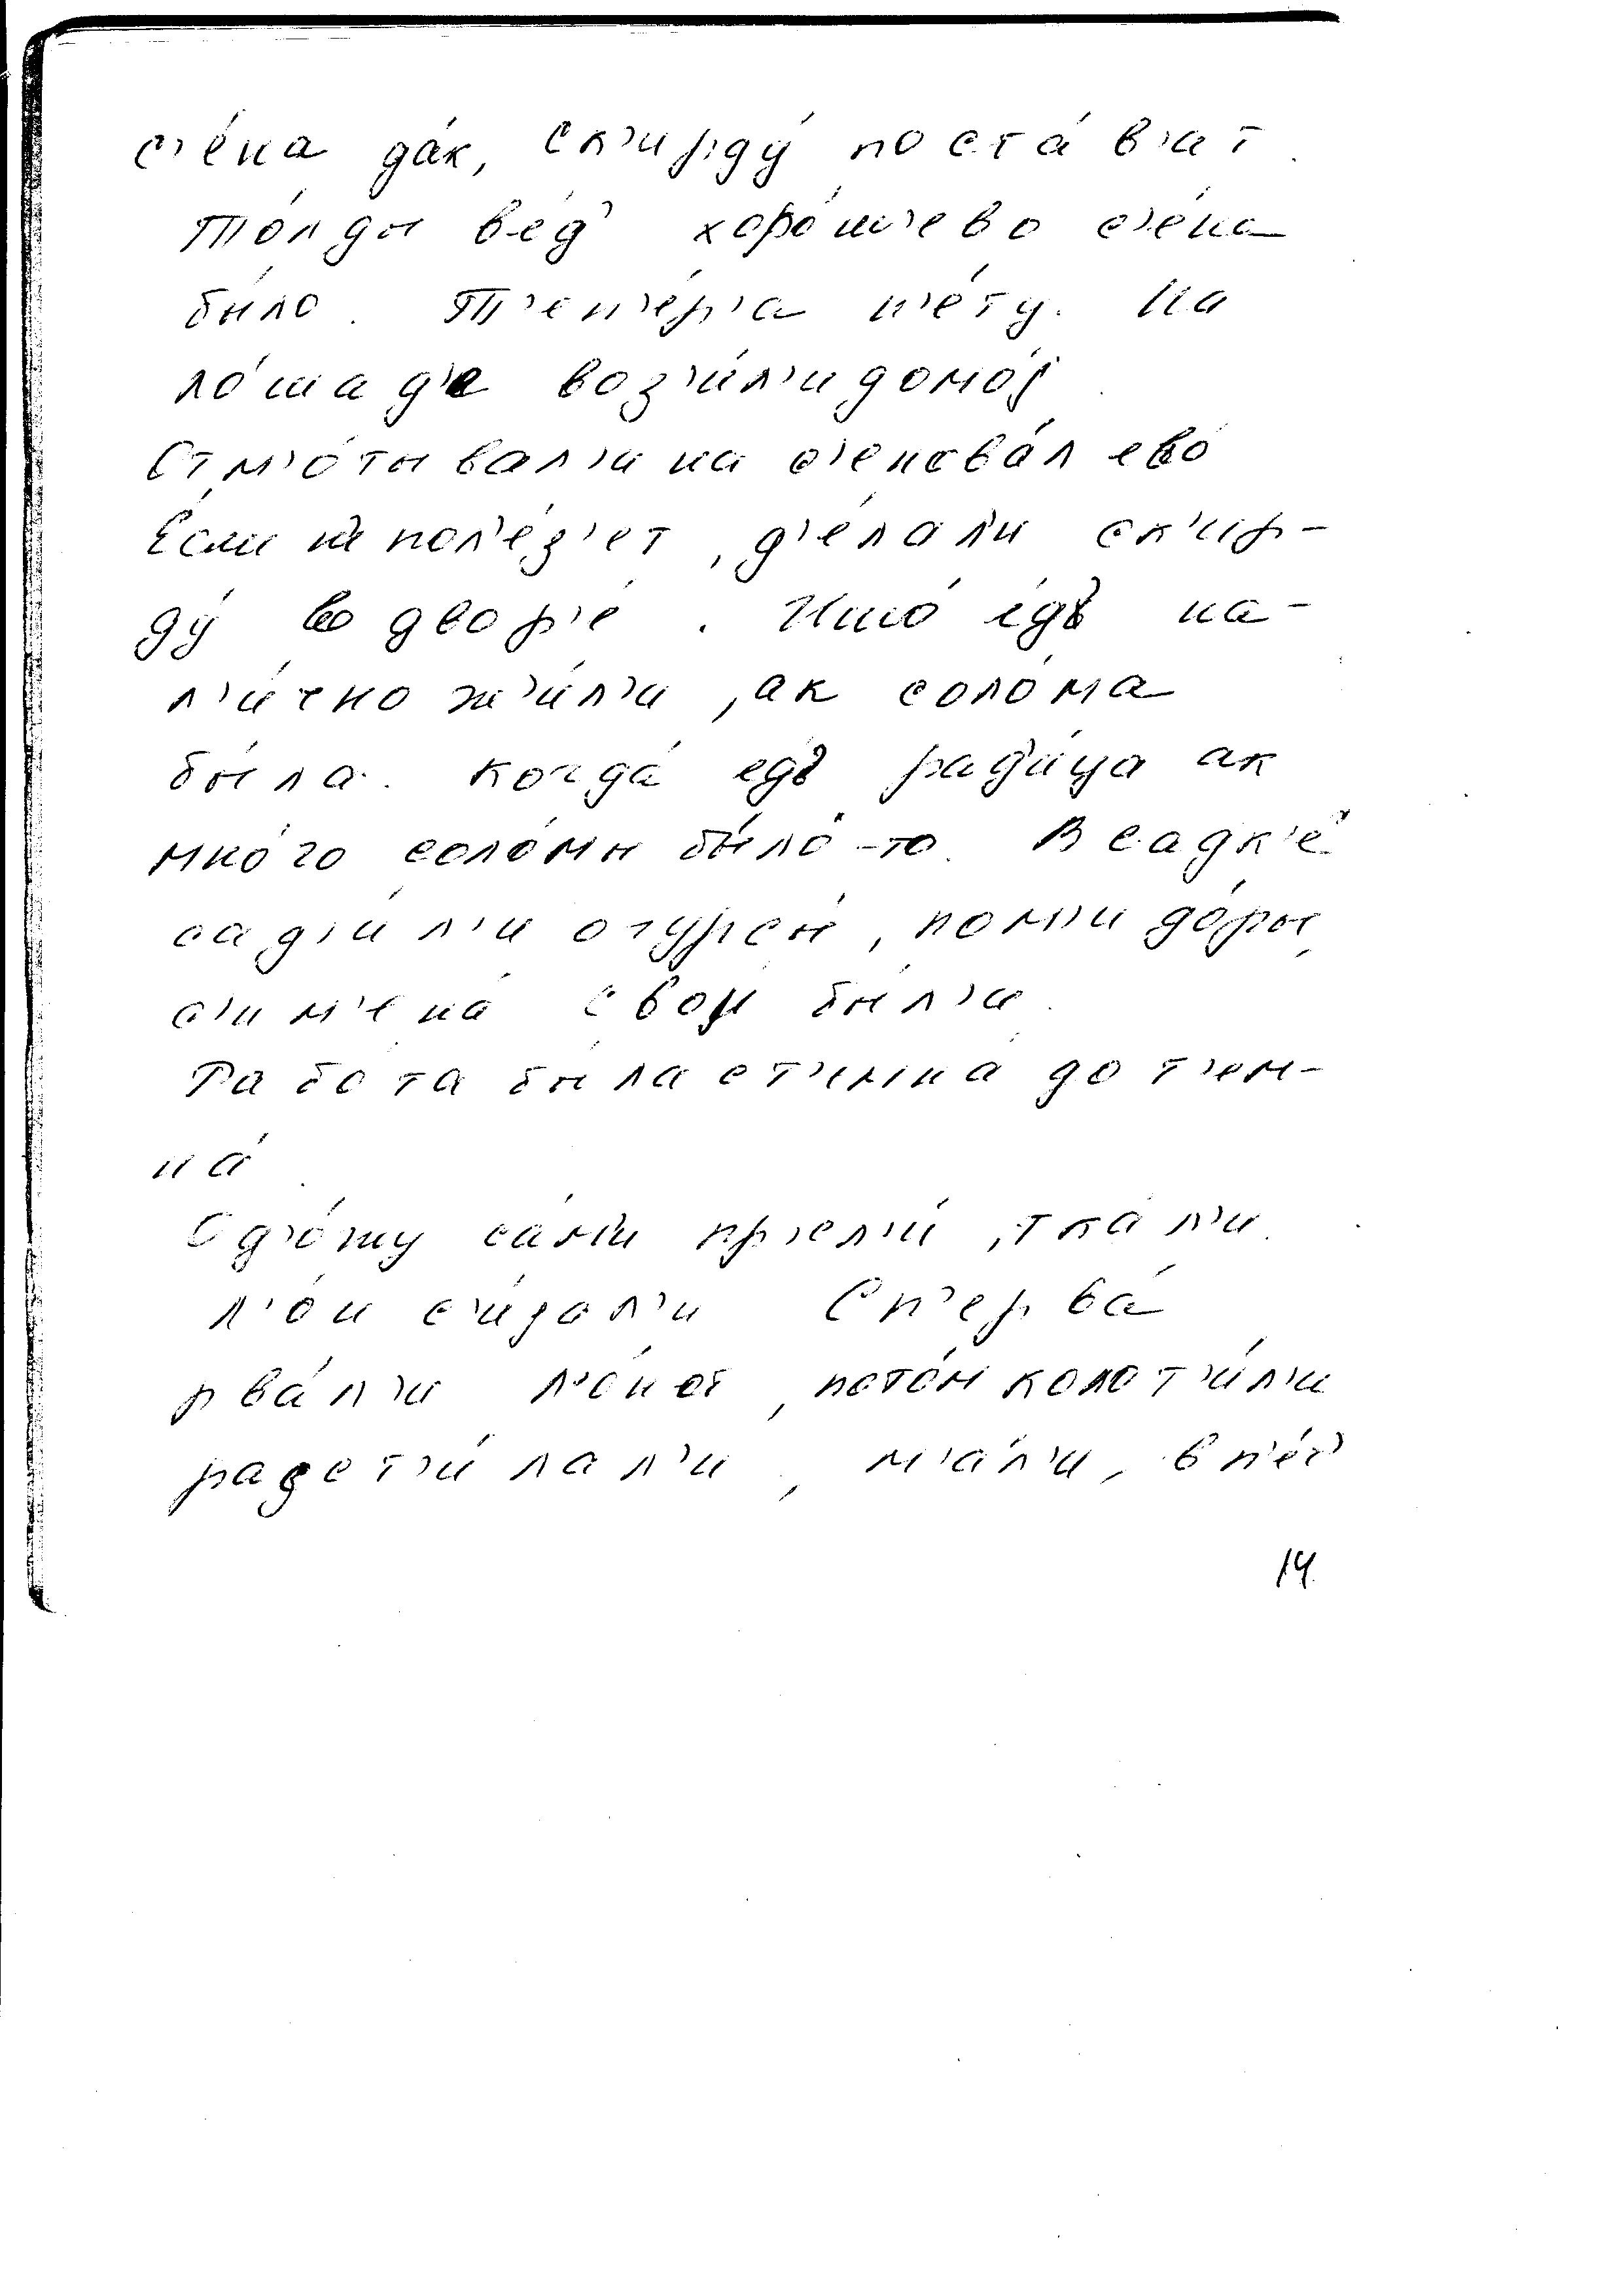 с'е́на да́к, ск'ирду́ поста́в'ат.
То́лды вед' хоро́шево с'е́на
бы́ло. Т'еп'е́р'а н'е́ту. На
ло́шаде воз'и́л'и домо́j
См'о́тывал'и на с'енова́л ево́
Е́сли не пол'е́з'ет, д'е́лал'и ск'ир-
ду́ во двор'е́. Ишо́ на-
л'и́чно ж'и́л'и, ак соло́ма
была́. Когда́ рад'и́ца ак
мно́го соло́мы бы́ло-то. В садк'е́
сад'и́л'и огурсы́, пом'идо́ры,
с'им'ена́ свои бы́л'и.
Рабо́та была с т'имна́ до т'ем-
на́.
Од'о́жу са́м'и пр'ел'и́, тка́л'и.
л'он с'и́jал'и Сп'ерва́
рва́л'и л'о́н потом колот'и́л'и
расст'ила́л'и, м'а́л'и, в п'еч'
14